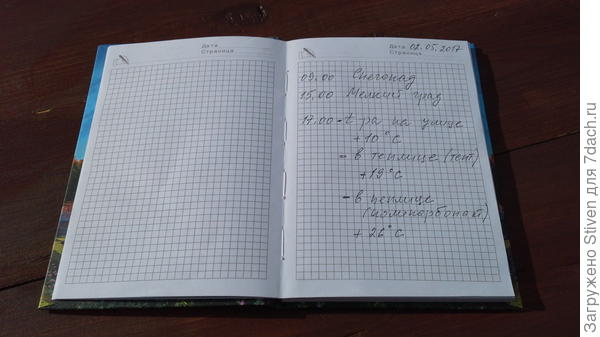 Дата
Страница
Дата 02.05.2017
Страница
09.00 Снегопад
15.00 Мелкий град
17.00 - t ра на улице
+10°С
- в теплице (тент)
+19°С
- в теплице
(поликарбонат)
+26°С
Загружено Stiven для 7dach.ru